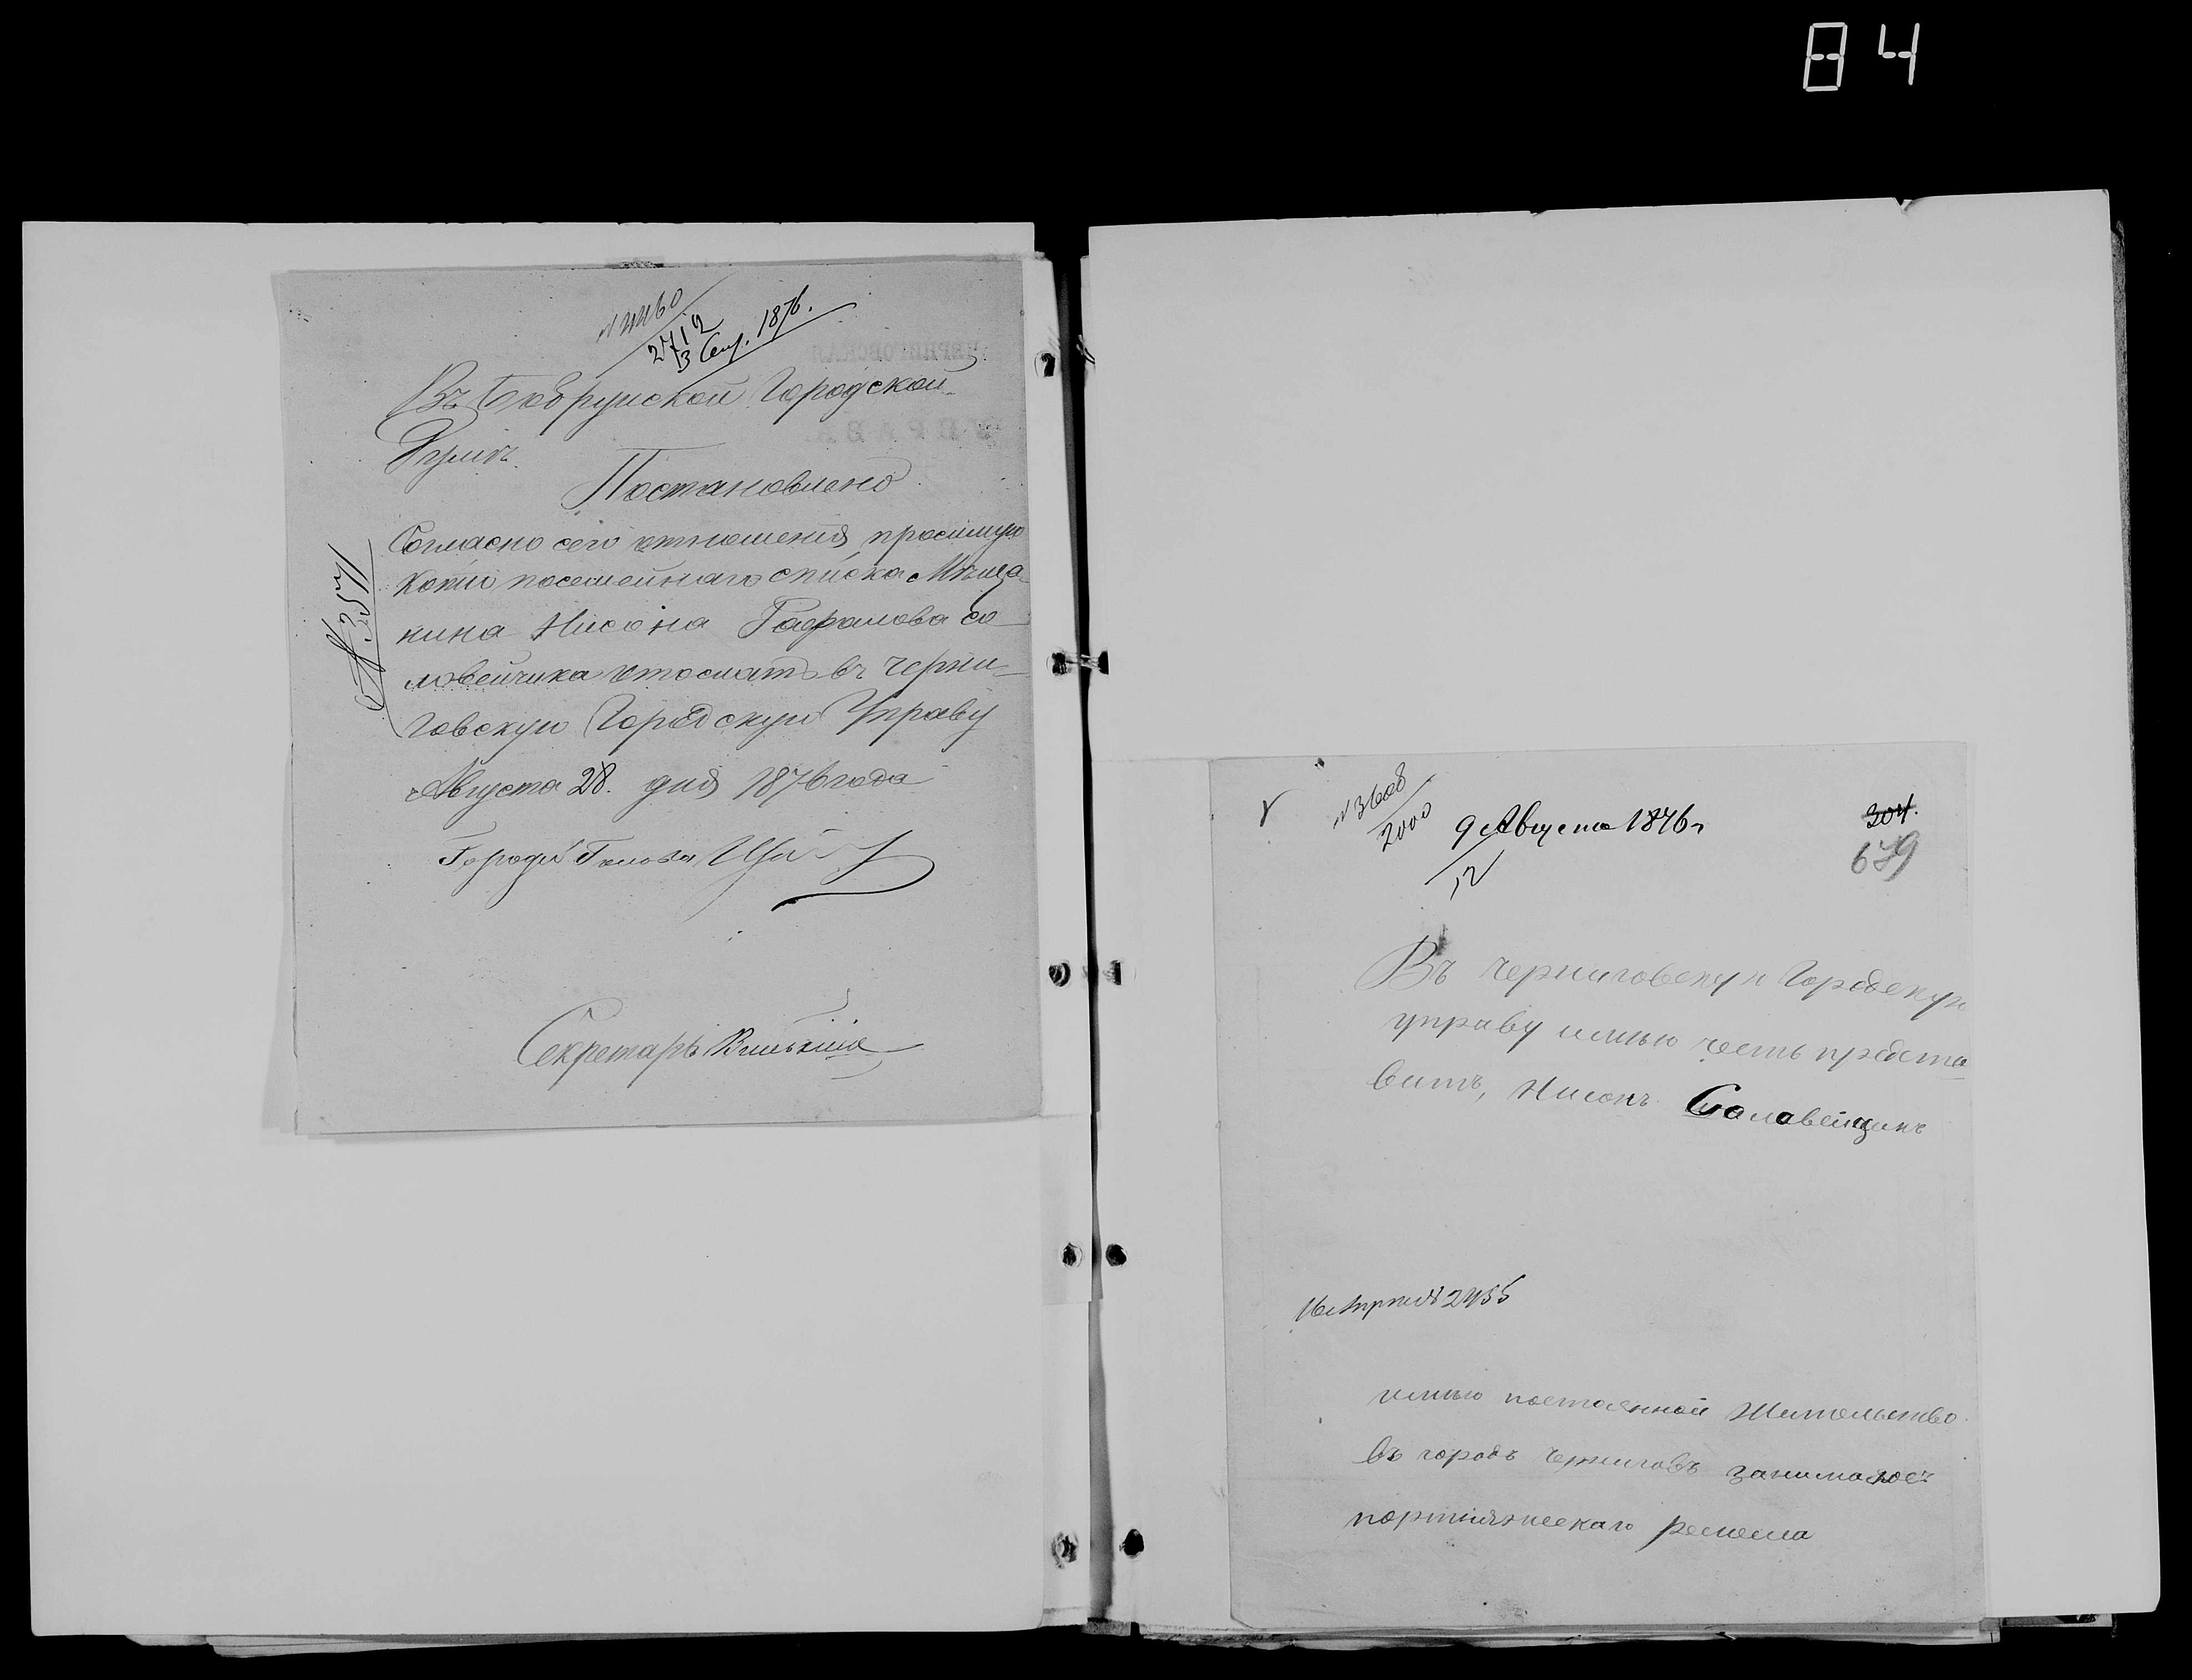 84
№ 4460
2712
3 Сент. 1876.
Въ Бобруйской Городской
Думѣ.
Постановлено
Согласно сего отношения, просимую
Копию посемейнаго списка Мѣща-
нина Нисона Рафаилова Со-
ловейчика отослать въ Черни-
говскую Городскую Управу
Августа 28. дня 1876 года
Город. Голова
Секретарь
№ 3571
№ 3608
2000
9 Августа 1876 г.
12
304.
679
Въ Черниговскую Городскую
управу имѣю честь предста-
вить, Нисонъ Соловейчикъ
имѣю постоянной Жительство
въ городѣ Черниговѣ занимаюсь
портняжескаго ремесла